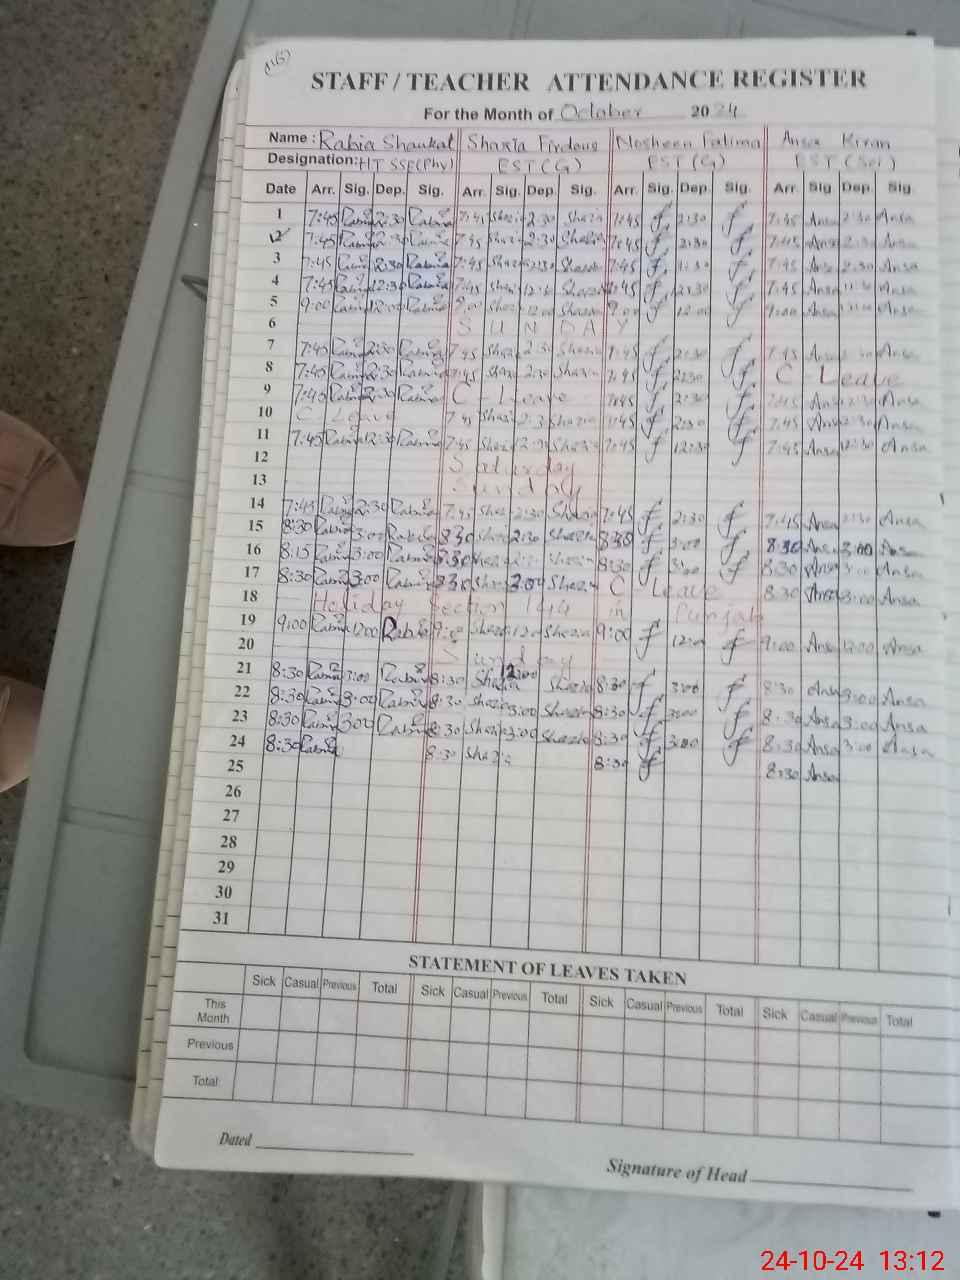 STAFF / TEACHER ATTENDANCE REGISTER
For the Month of October 2024
Name : Rabia Shaukat Shazia Firdous Nosheen Fatima Ansa Kiran
Designation: HT SSE(Phy) EST (G) EST (G) EST (Sci)
Date Arr. Sig. Dep. Sig. Arr. Sig. Dep. Sig. Arr. Sig. Dep. Sig. Arr. Sig. Dep. Sig.
1 7:45 Rabia 2:30 Rabia 7:45 Shazia 2:30 Shazia 7:45 2:30 7:45 Ansa 2:30 Ansa
2 7:45 Rabia 2:30 Rabia 7:45 Shazia 2:30 Shazia 7:45 2:30 7:45 Ansa 2:30 Ansa
3 7:45 Rabia 2:30 Rabia 7:45 Shazia 2:30 Shazia 7:45 2:30 7:45 Ansa 2:30 Ansa
4 7:45 Rabia 12:30 Rabia 7:45 Shazia 12:30 Shazia 7:45 12:30 7:45 Ansa Ansa
5 9:00 Rabia 12:00 Rabia 9:00 Shazia 12:00 Shazia 9:00 12:00 9:00 Ansa Ansa
6 SUNDAY
7 7:45 Rabia 2:30 Rabia 7:45 Shazia 2:30 Shazia 7:45 2:30 7:45 Ansa 2:30 Ansa
8 7:45 Rabia 2:30 Rabia 7:45 Shazia 2:30 Shazia 7:45 2:30 C - Leave
9 7:45 Rabia 2:30 Rabia C - Leave 7:45 2:30 7:45 Ansa 2:30 Ansa
10 C - Leave 7:45 Shazia 2:30 Shazia 7:45 2:30 7:45 Ansa 2:30 Ansa
11 7:45 Rabia 12:30 Rabia 7:45 Shazia Shazia 7:45 12:30 7:45 Ansa 12:30 Ansa
12 Saturday
13 Sunday
14 7:45 Rabia 2:30 Rabia 7:45 Shazia 2:30 Shazia 7:45 2:30 7:45 Ansa 2:30 Ansa
15 8:30 Rabia 3:00 Rabia 8:30 Shazia 2:30 Shazia 8:30 3:00 8:30 Ansa 3:00 Ansa
16 8:15 Rabia 3:00 Rabia 8:30 Shazia Shazia 8:30 3:00 8:30 Ansa 3:00 Ansa
17 8:30 Rabia 3:00 Rabia 8:30 Shazia 3:00 Shazia C - Leave 8:30 Ansa 3:00 Ansa
18 Holiday Section 144 in Punjab
19 9:00 Rabia 12:00 Rabia 9:00 Shazia 12:00 Shazia 9:00 12:00 9:00 Ansa 12:00 Ansa
20 Sunday
21 8:30 Rabia 3:00 Rabia 8:30 Shazia Shazia 8:30 3:00 8:30 Ansa 3:00 Ansa
22 8:30 Rabia 3:00 Rabia 8:30 Shazia 3:00 Shazia 8:30 3:00 8:30 Ansa 3:00 Ansa
23 8:30 Rabia 3:00 Rabia 8:30 Shazia 3:00 Shazia 8:30 3:00 8:30 Ansa 3:00 Ansa
24 8:30 Rabia 8:30 Shazia 8:30 8:30 Ansa
25
26
27
28
29
30
31
STATEMENT OF LEAVES TAKEN
Sick Casual Previous Total Sick Casual Previous Total Sick Casual Previous Total Sick Casual Previous Total
This Month
Previous
Total
Dated
Signature of Head
24-10-24 13:12